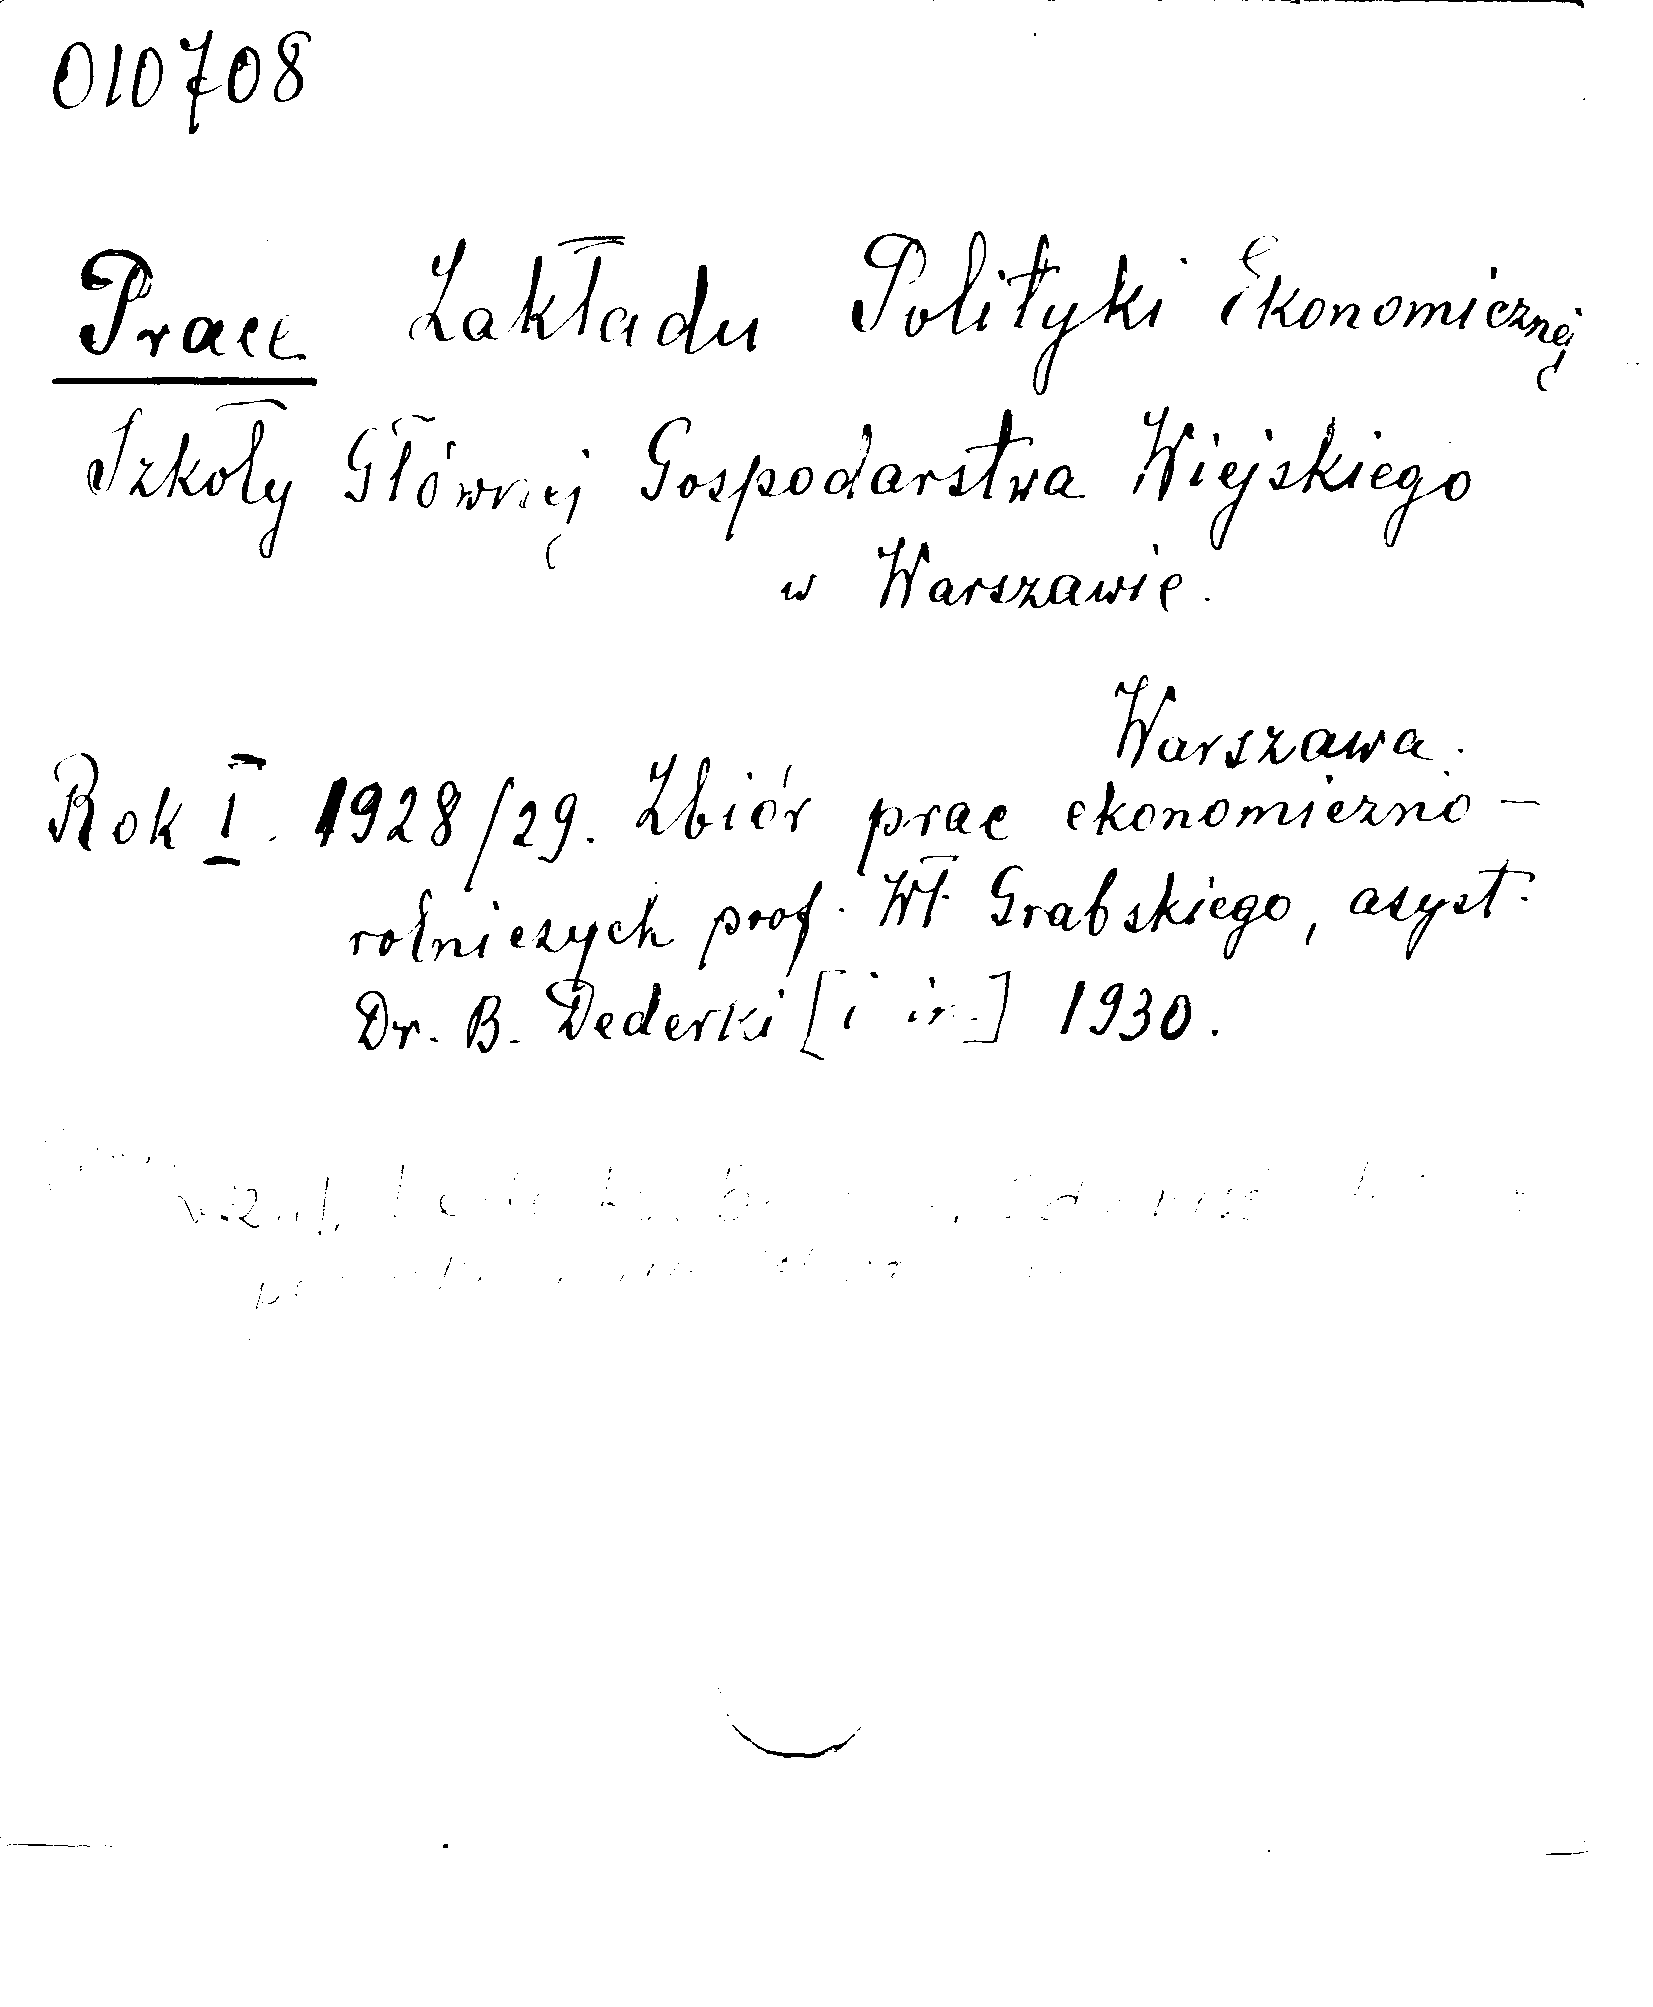 010708
Prace Zakładu Polityki Ekonomicznej
Szkoły Głównej Gospodarstwa Wiejskiego
w Warszawie.
Warszawa.
Rok I. 1928/29. Zbiór prac ekonomiczno-
rolniczych prof. Wł. Grabskiego, asyst.
Dr. B. Dederki [i in.] 1930.